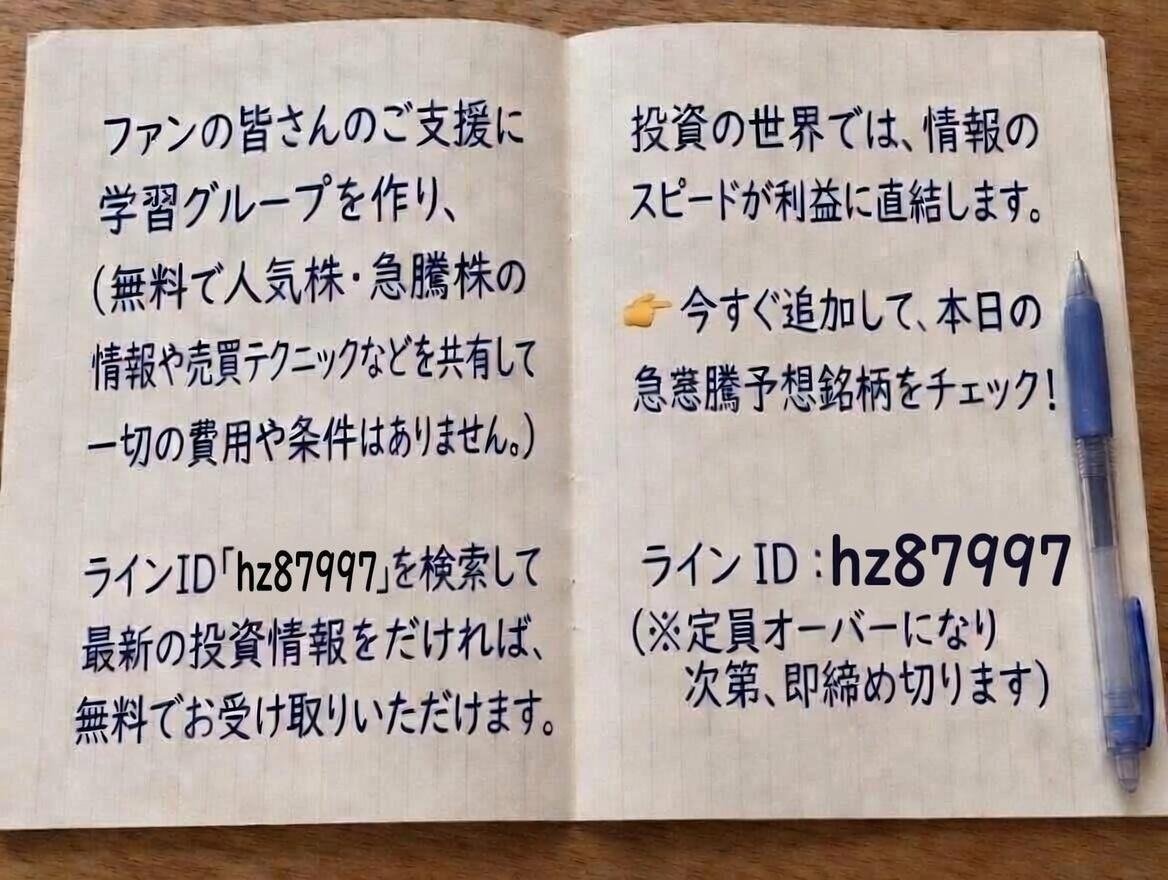 ファンの皆さんのご支援に
学習グループを作り、
(無料で人気株・急騰株の
情報や売買テクニックなどを共有して
一切の費用や条件はありません。)
ラインID「hz87997」を検索して
最新の投資情報をだければ、
無料でお受け取りいただけます。
投資の世界では、情報の
スピードが利益に直結します。
👉今すぐ追加して、本日の
騰予想銘柄をチェック!
ラインID:hz87997
(※定員オーバーになり
次第、即締め切ります)